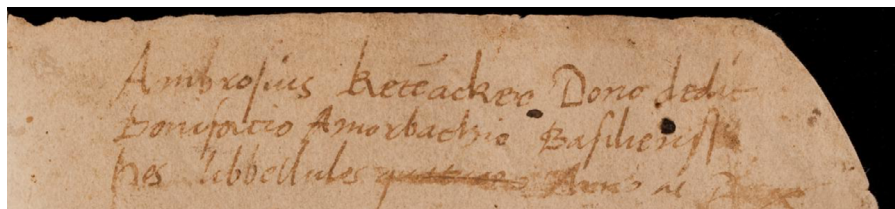 Ambrosius Ketēacker Dono dedit
Bonifacio Amorbachio Basiliensi
hos libbellulos